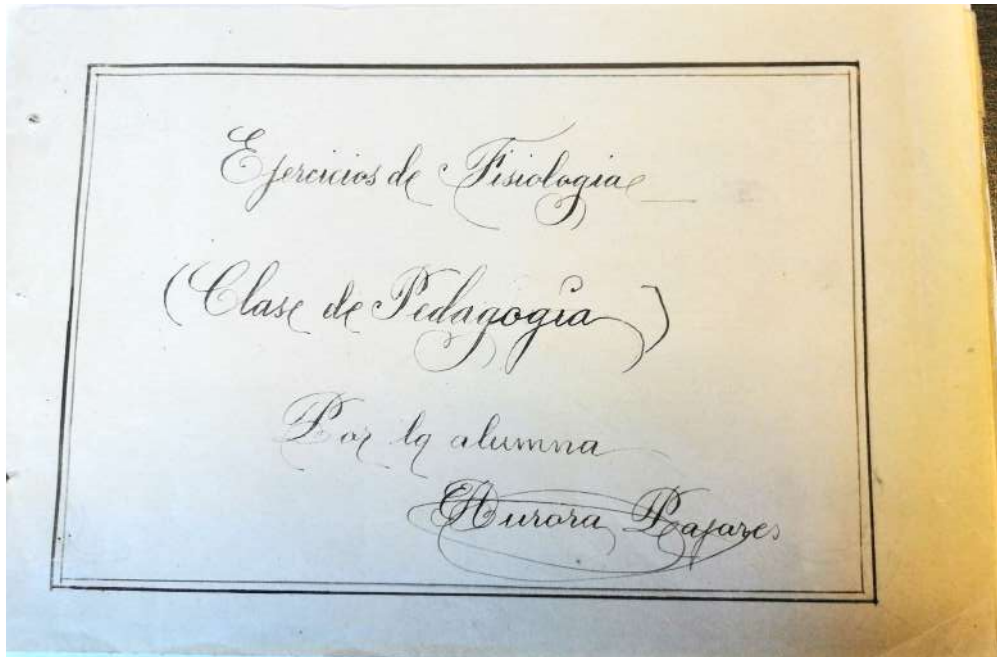 Ejercicios de Fisiologia
(Clase de Pedagogía)
Por la alumna
Aurora Pajares